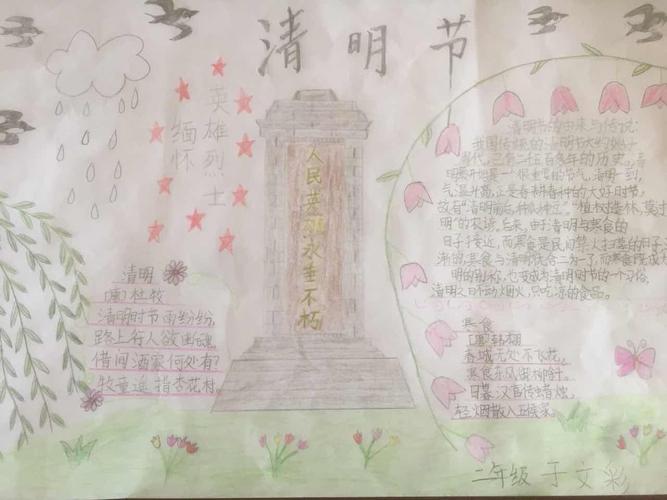 清明节
英雄烈士
缅怀
人民英雄永垂不朽
清明
[唐]杜牧
清明时节雨纷纷,
路上行人欲断魂
借问酒家何处有?
牧童遥指杏花村。
清明节的由来与传说:
我国传统的清明节大约始于
周代,已有二千五百多年的历史。清
明最开始是一个很重要的节气,清明一到,
气温升高,正是春耕春种的大好时节,
故有"清明前后,种瓜种豆"。"植树造林,莫过
清明"的农谚。后来,由于清明与寒食的
日子接近,而寒食是民间禁火扫墓的日子,
渐渐的,寒食与清明就合二为一了,而寒食既成为清
明的别称,也变成为清明时节的一个习俗,
清明之日不动烟火,只吃凉的食品。
寒食
[唐]韩翃
春城无处不飞花,
寒食东风御柳斜。
日暮汉宫传蜡烛,
轻烟散入五侯家。
二年级 于文彩